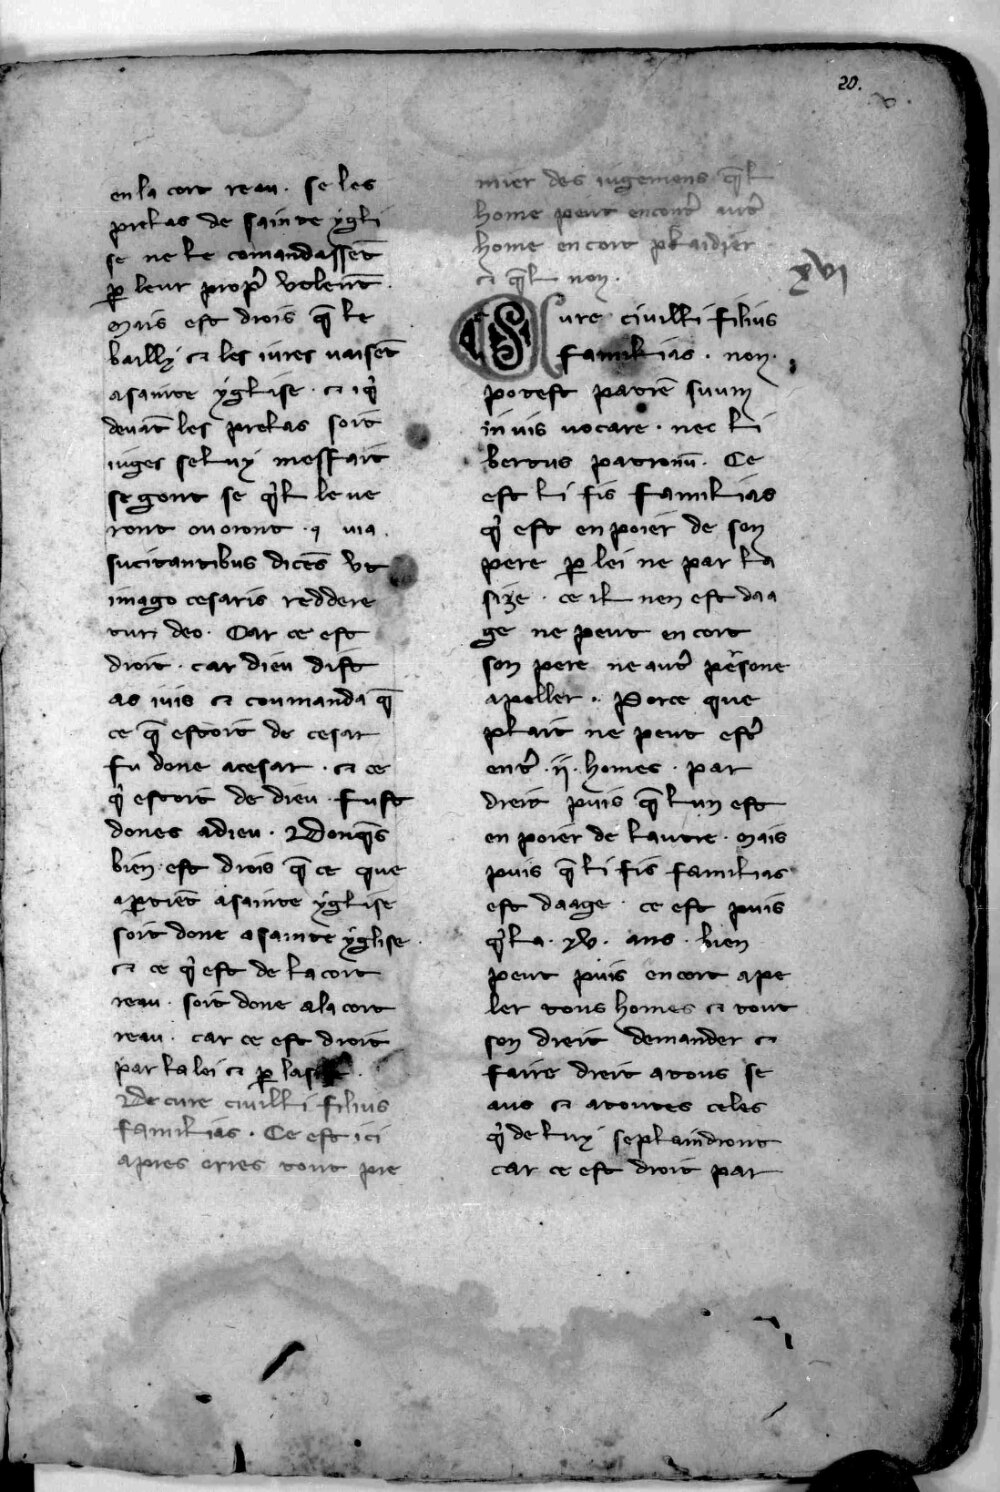 20.
en la cort reau. se les
prelas de sainte ygli
se ne le comandassēt
ꝑ leur propʳ volentꝰ.
mais est drois q̄ le
bailly ⁊ les iures uaisēt
a sainte yglise. ⁊ iqͥ
deuāt les prelas soit
iuges seluy mesfait
segont se qͥl le ue
ront ou oront.
sucitantibus dicēs vt
imago cesaris reddere
tur deo. Car ce est
droit. car dieu dist
as iuis ⁊ coumanda q̄
ce q̄ estoit de cesar
fu done a cesar. ⁊ ce
qͥ estoit de dieu. fust
dones a dieu. Donq̄s
bien est drois q̄ ce que
aꝑtiēt a sainte yglise
soit done a sainte yglise.
⁊ ce qͥ est de la cort
reau. soit done a la cort
reau. car ce est droit
par la lei ⁊ ꝑ lasise.
De iure ciuilli filius
familias. Ce est ici
apres orres tout pre
mier des iugemens q̄l
home peut encontʳ autʳ
home en cort plaidier
⁊ q̄l non.
xvi
Iure ciuilli filius
familias. non.
potest patrē suum
in uis uocare. nec li
bertus patronū. Ce
est li fis familias
qͥ est en poier de son
pere ꝑ lei ne par la
size. ce il nen est daa
ge ne peut en cort
son pere ne autʳ persone
apeller. Porce que
plait ne peut estʳ
entʳ .ij. homes. par
dreit puis q̄ lun est
en poier de lautre. mais
puis q̄ li fis familias
est daage. ce est puis
qͥl a .xv. ans. bien
peut puis en cort ape
ler tous homes ⁊ tout
son dreit demander ⁊
faire dreit a tous se
aus ⁊ a toutes celes
qͥ de luy se plaindront
car ce est droit par